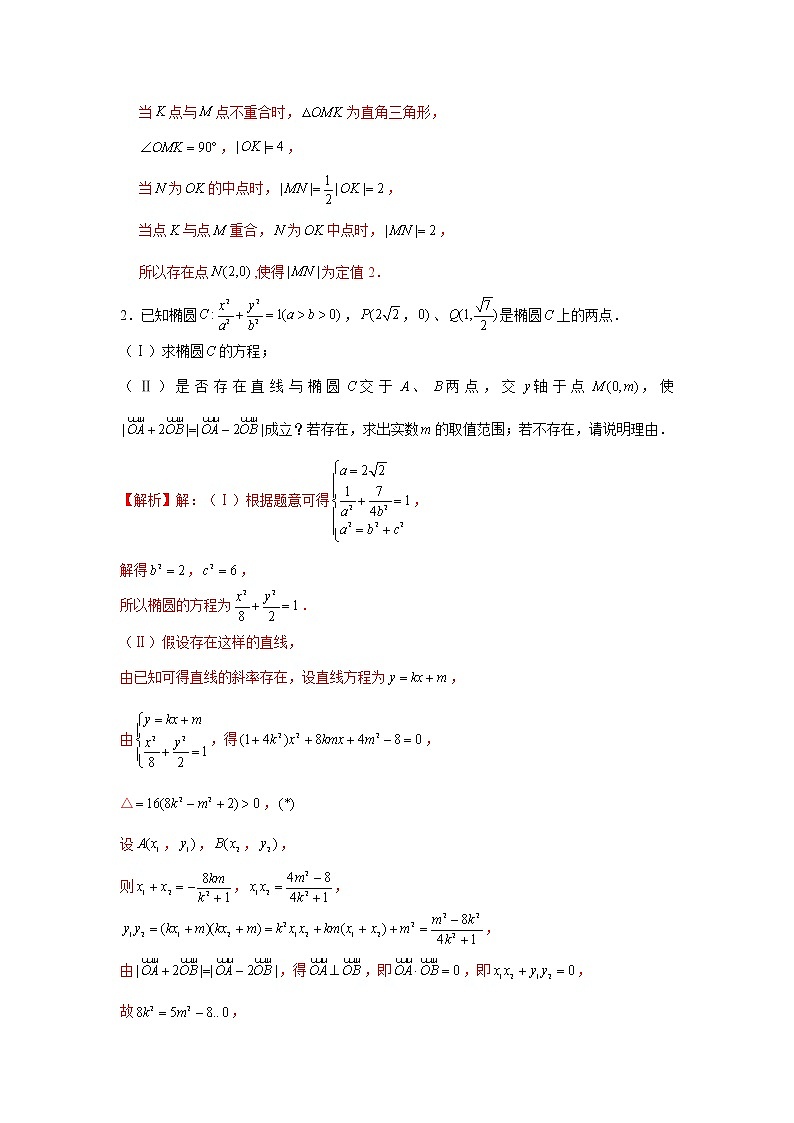 当K点与M点不重合时，ΔOMK为直角三角形，
∠OMK = 90°，|OK|= 4，
当N为OK的中点时，|MN|= \frac{1}{2}|OK|= 2，
当点K与点M重合，N为OK中点时，|MN|= 2，
所以存在点N(2,0) ,使得|MN|为定值 2．
2．已知椭圆C : \frac{x^2}{a^2} + \frac{y^2}{b^2} = 1(a > b > 0)，P(2\sqrt{2}，0) 、Q(1, \frac{\sqrt{7}}{2})是椭圆C上的两点．
（Ⅰ）求椭圆C的方程；
（Ⅱ）是否存在直线与椭圆C交于A、B两点，交y轴于点M(0,m)，使
|\overset{ฃฃฃ}{OA} + 2\overset{ฃฃฃ}{OB}|=|\overset{ฃฃฃ}{OA} − 2\overset{ฃฃฃ}{OB}|成立？若存在，求出实数m的取值范围；若不存在，请说明理由．
【解析】解：（Ⅰ）根据题意可得\begin{cases} a = 2\sqrt{2} \\ \frac{1}{a^2} + \frac{7}{4b^2} = 1 \\ a^2 = b^2 + c^2 \end{cases}，
解得b^2 = 2，c^2 = 6，
所以椭圆的方程为\frac{x^2}{8} + \frac{y^2}{2} = 1．
（Ⅱ）假设存在这样的直线，
由已知可得直线的斜率存在，设直线方程为y = kx + m，
由\begin{cases} y = kx + m \\ \frac{x^2}{8} + \frac{y^2}{2} = 1 \end{cases}，得(1 + 4k^2)x^2 + 8kmx + 4m^2 − 8 = 0，
△= 16(8k^2 − m^2 + 2) > 0，(*)
设A(x_1，y_1)，B(x_2，y_2)，
则x_1 + x_2 = −\frac{8km}{k^2 + 1}，x_1x_2 = \frac{4m^2 − 8}{4k^2 + 1}，
y_1y_2 = (kx_1 + m)(kx_2 + m) = k^2x_1x_2 + km(x_1 + x_2) + m^2 = \frac{m^2 − 8k^2}{4k^2 + 1}，
由|\overset{ฃฃฃ}{OA} + 2\overset{ฃฃฃ}{OB}|=|\overset{ฃฃฃ}{OA} − 2\overset{ฃฃฃ}{OB}|，得\overset{ฃฃฃ}{OA} ⊥ \overset{ฃฃฃ}{OB}，即\overset{ฃฃฃ}{OA} · \overset{ฃฃฃ}{OB} = 0，即x_1x_2 + y_1y_2 = 0，
故8k^2 = 5m^2 − 8.. 0，